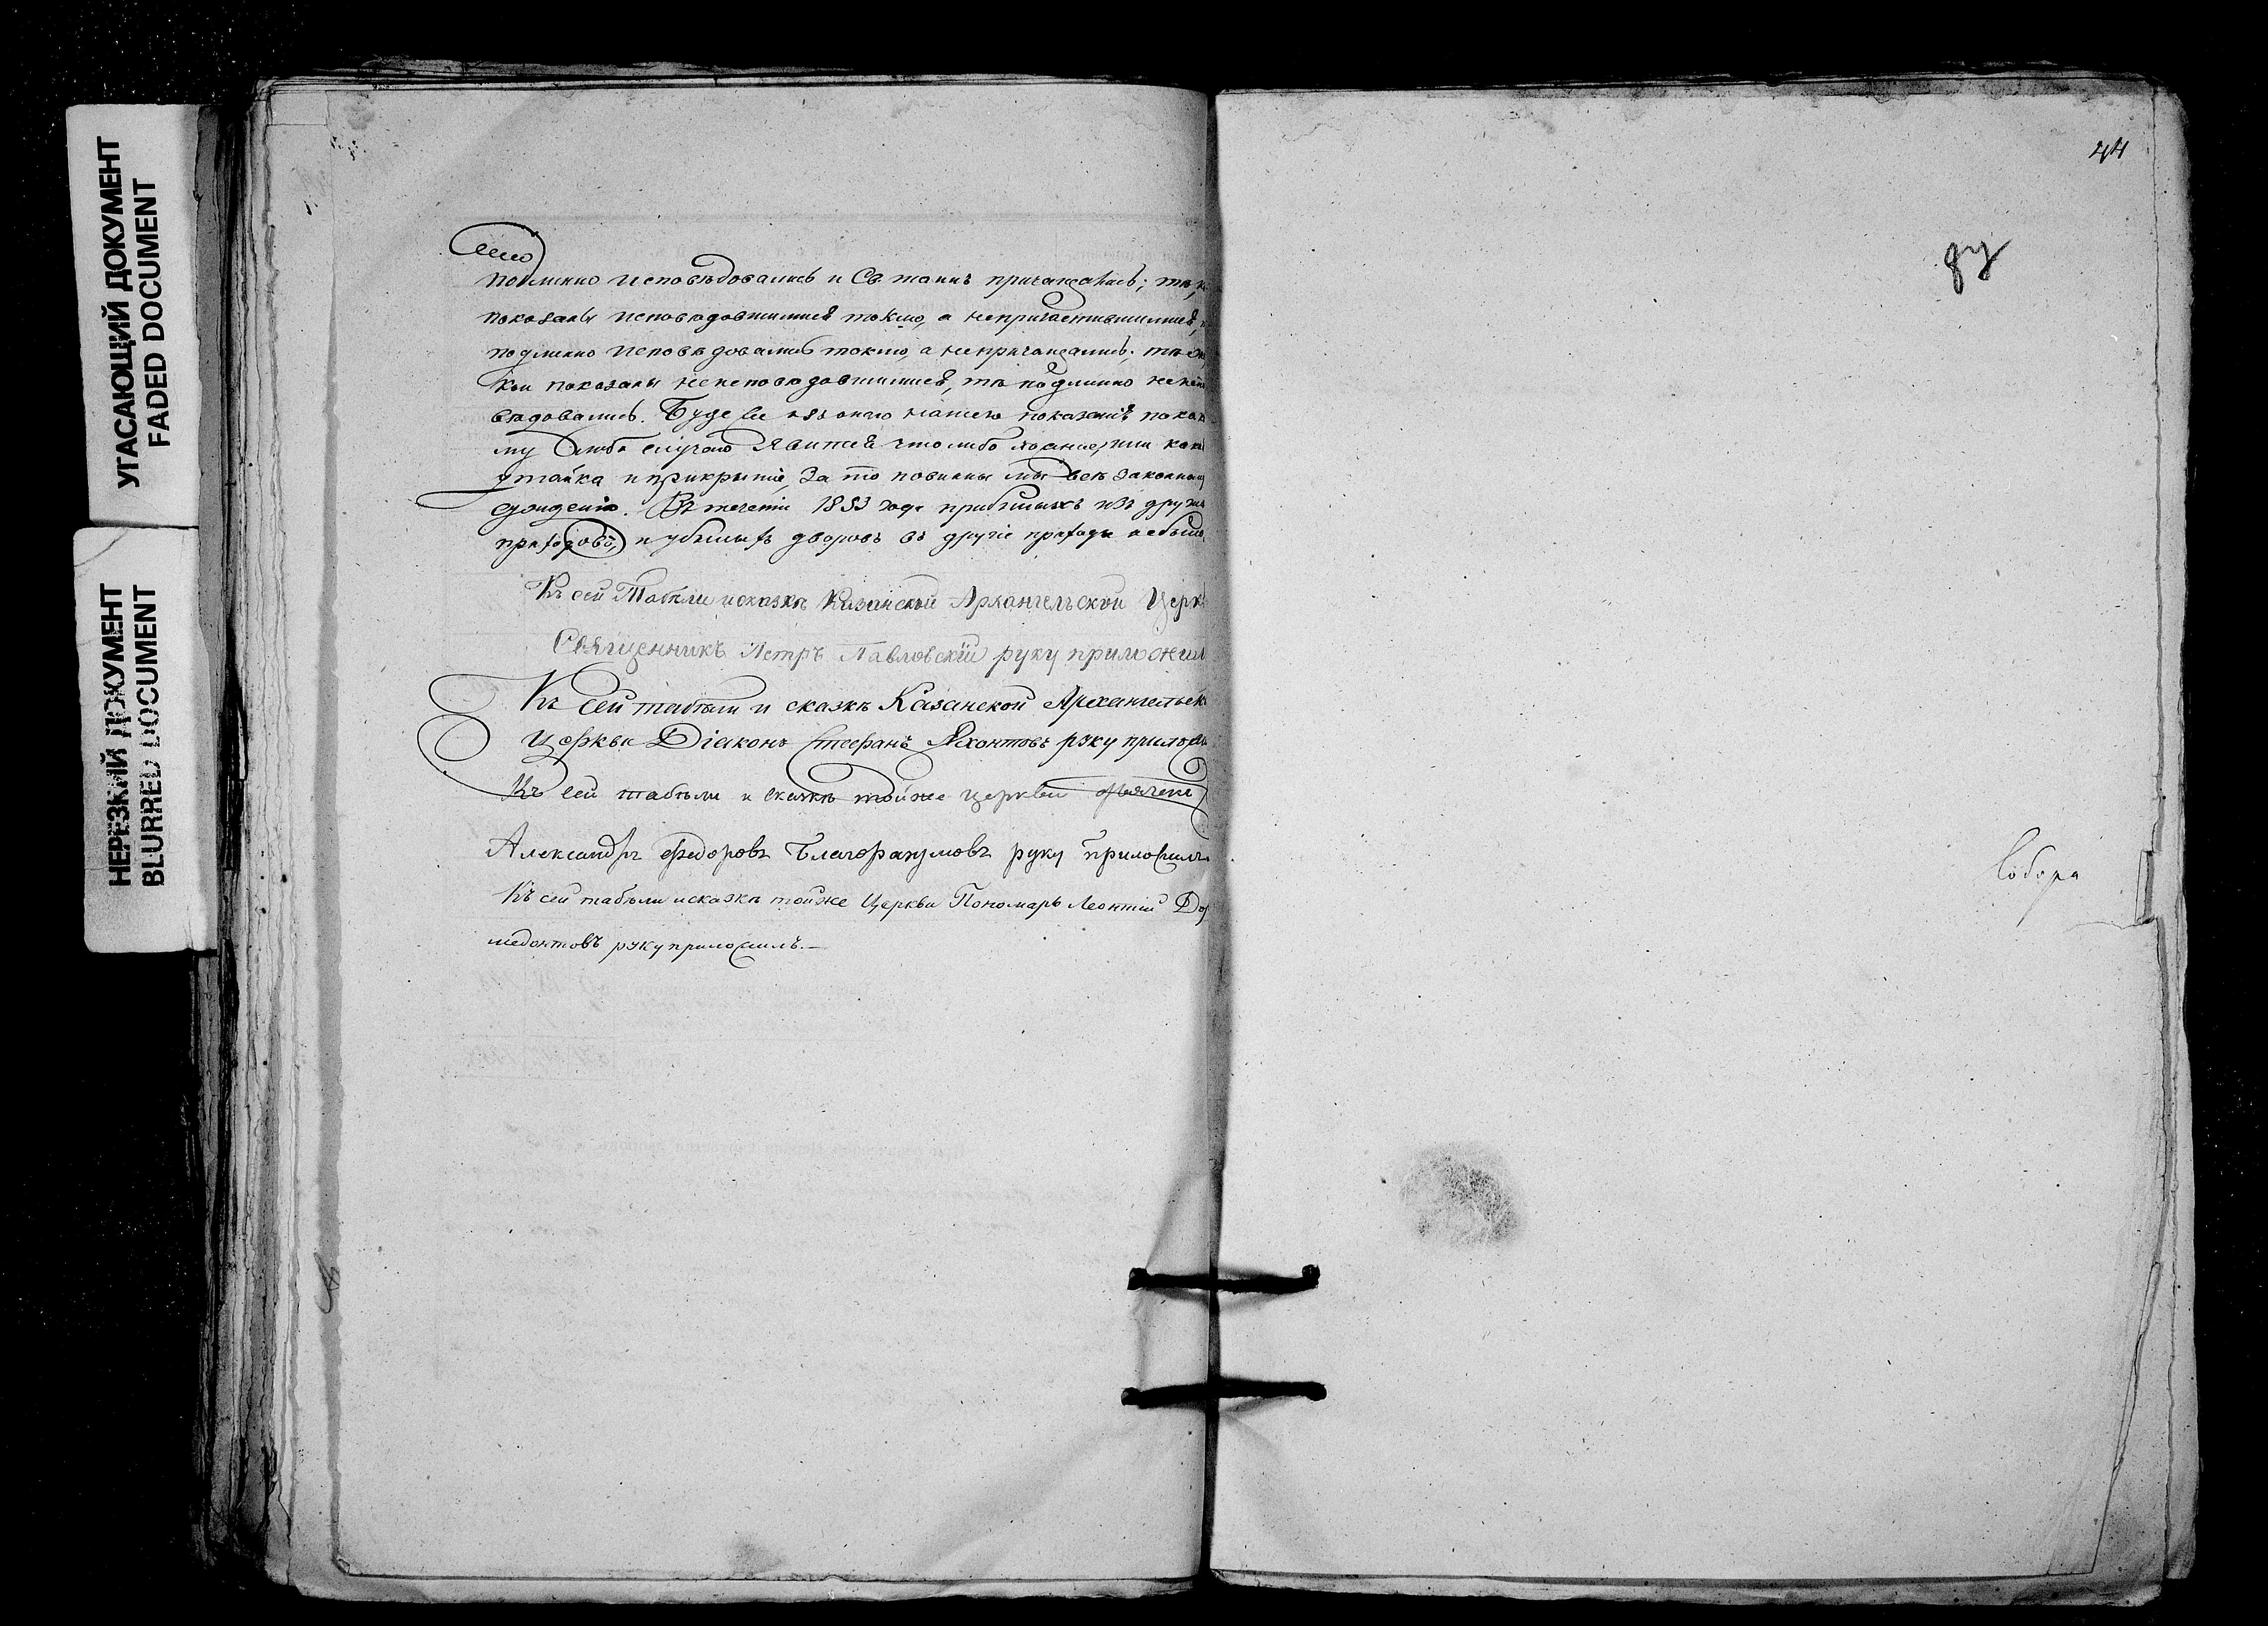 УГАСАЮЩИЙ ДОКУМЕНТ
FADED DOCUMENT
НЕРЕЗКИЙ ДОКУМЕНТ
BLURRED DOCUMENT
подлинно исповѣдовались и Св. таинъ причащались; тѣ,
показаны исповѣдавшимися токмо, а непричастившимися,
подлинно исповѣдовались токмо, а непричащались; тѣ
кои показаны неисповѣдавшимися, тѣ подлинно неиспо
вѣдовались. Буде же изъ онаго нашего показанія по како
му либо случаю явится что либо ложное, или какая
утайка и прикрытіе, За то повинны мы всѣ законному
сужденію. Въ теченіи 1853 года прибылыхъ изъ другихъ
приходовъ, и убылыхъ дворовъ въ другіе приходы небыло
Къ сей Табѣли и сказкѣ Казанской Архангельской Церк
Священникъ Петръ Павловскій руку приложил
Къ сей табѣли и сказкѣ Казанской Архангельск
Церкви Діаконъ Стефанъ Яхонтовъ руку прилож
Къ сей табѣли и сказкѣ тойже церкви дьячекъ
Александръ Федоровъ Благоразумовъ руку приложилъ
Къ сей табѣли и сказкѣ тойже Церкви Пономарь Леонтій До
медонтовъ руку приложилъ.—
44
Собора